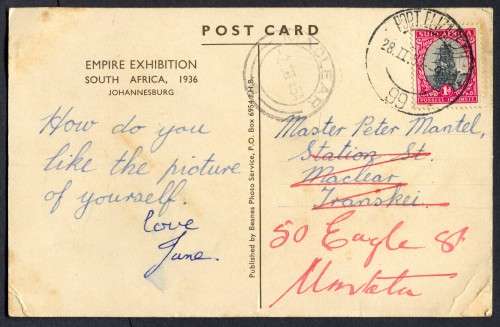 POST CARD
EMPIRE EXHIBITION
SOUTH AFRICA, 1936
JOHANNESBURG
How do you
like the picture
of yourself.
love
June.
Published by Beanes Photo Service, P.O. Box 6954 J.H.B.
MACLEAR
PORT ELIZABETH
28.II
99
1D
Master Peter Mantel,
Station St
Maclear
Transkei.
50 Eagle St
Umtata